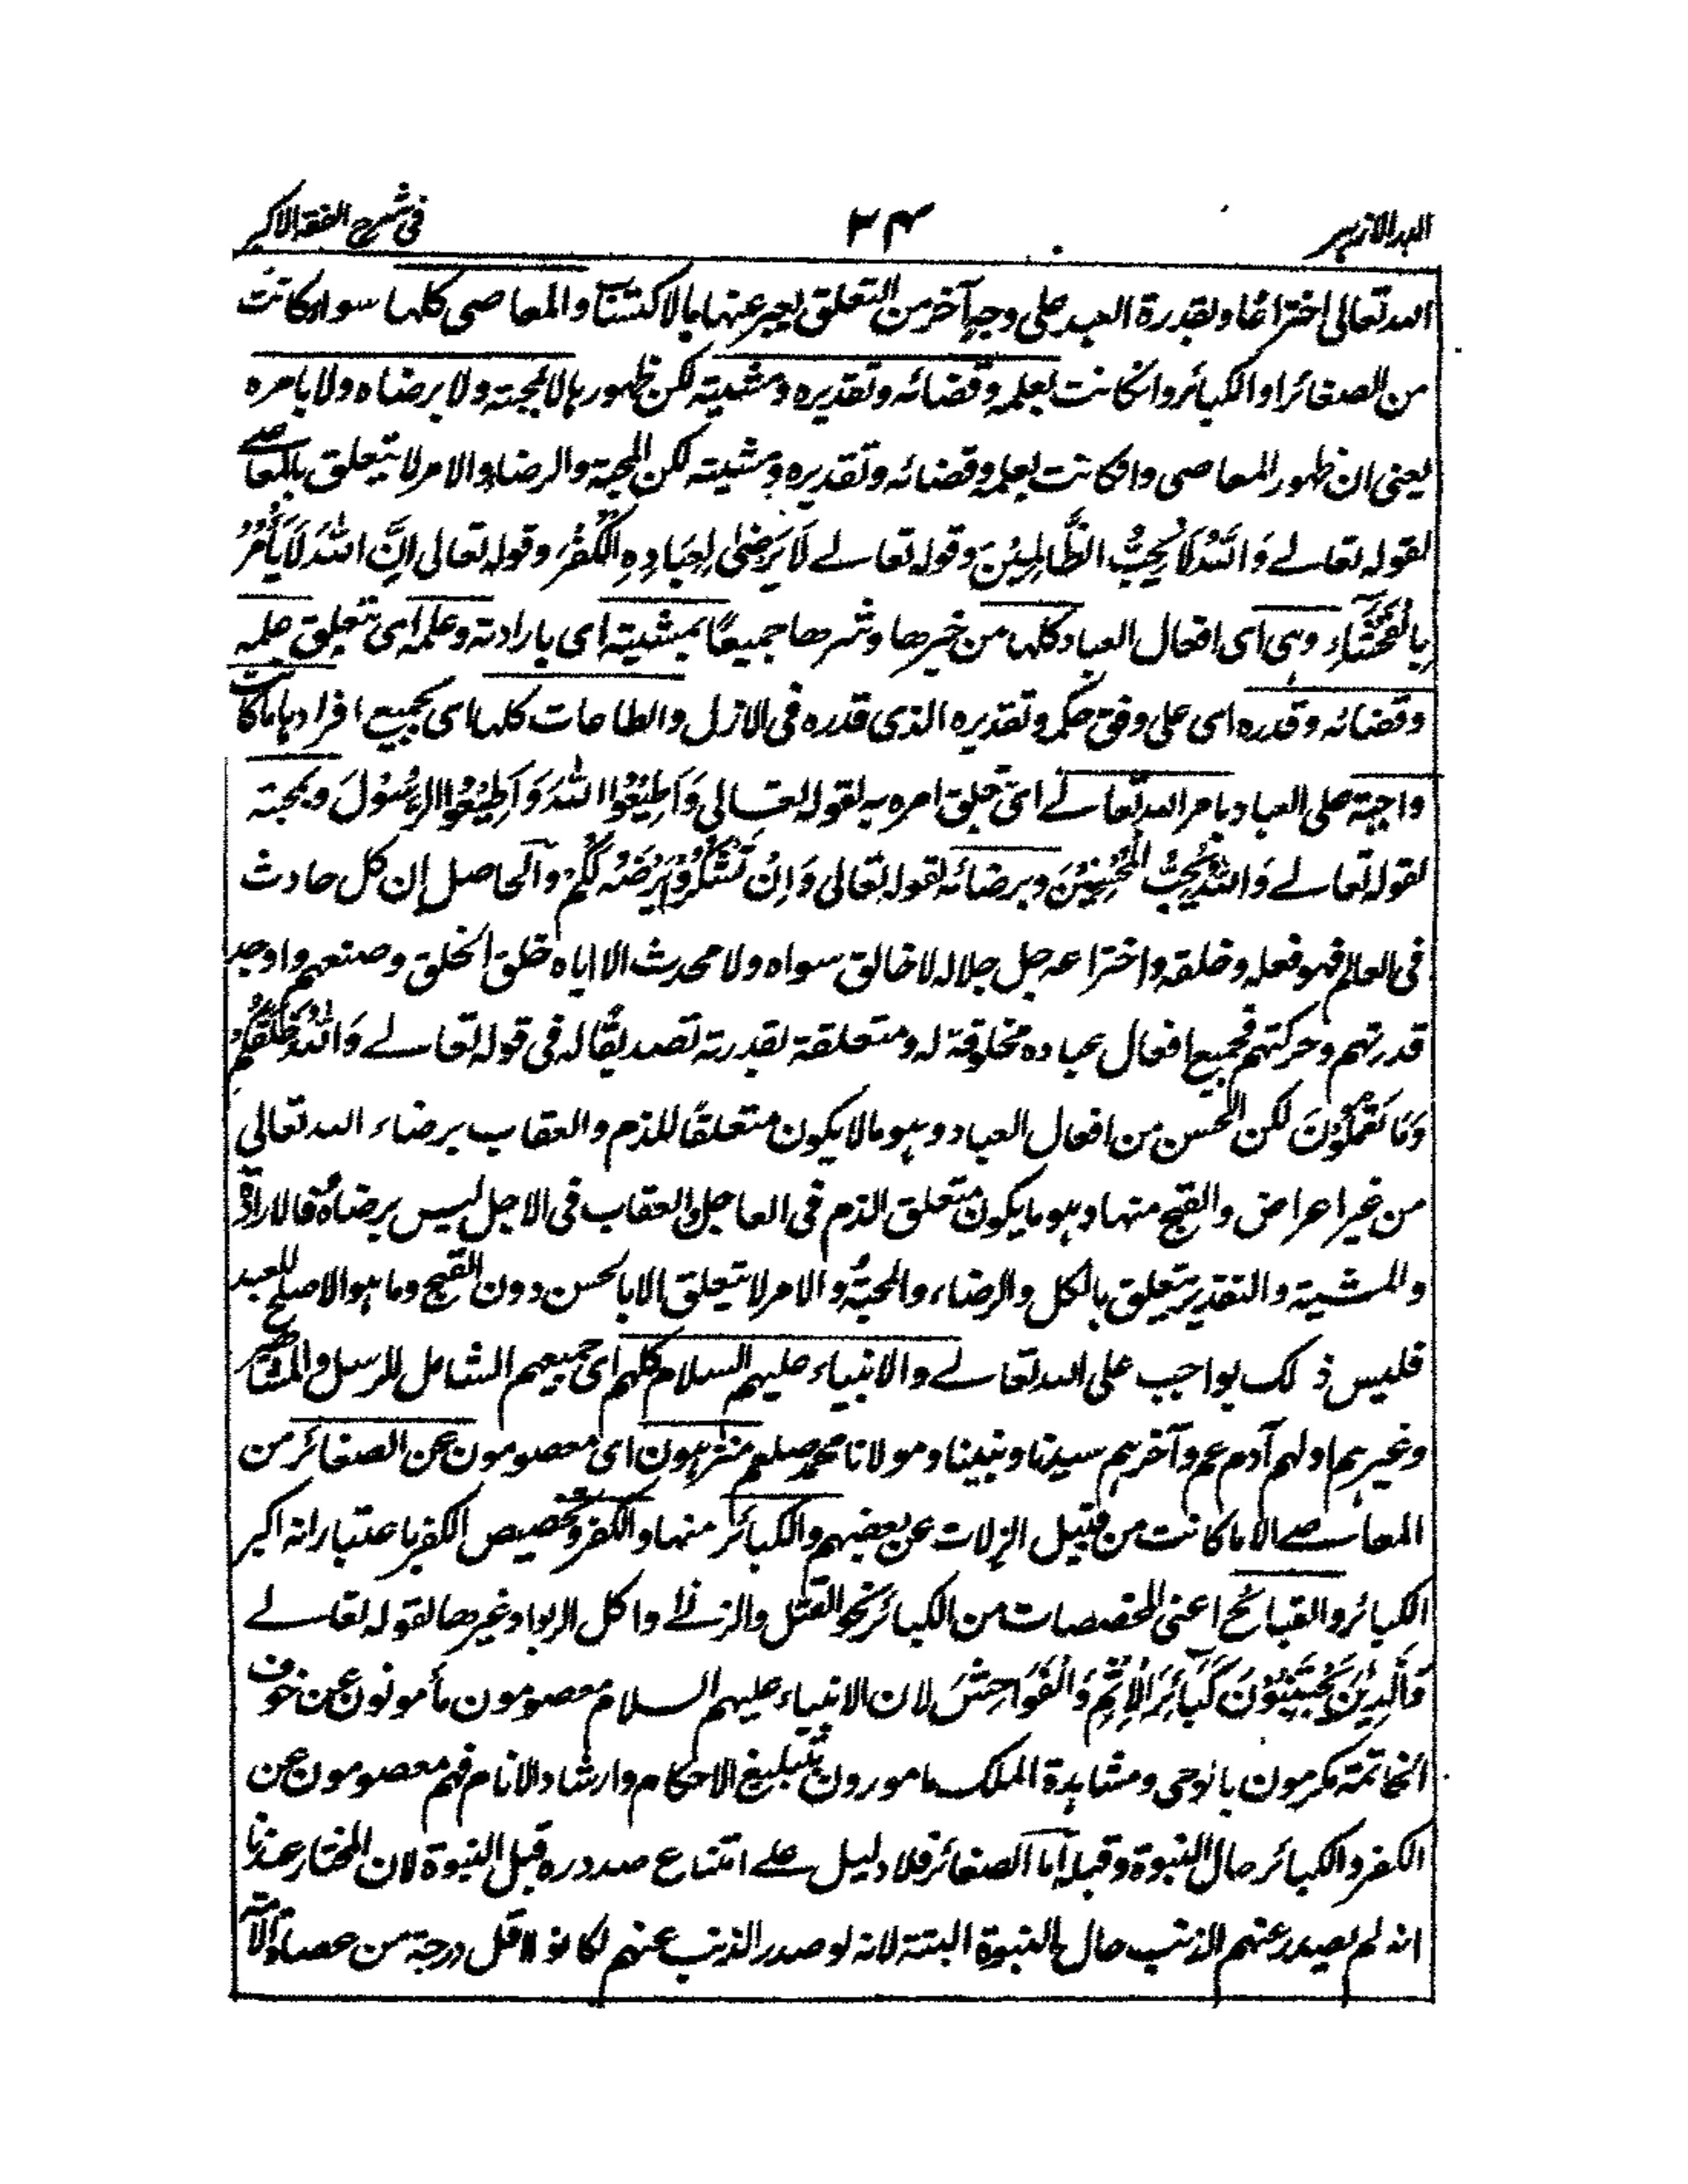 البدر الازهر ٣٤ فى شرح الفقه الاكبر
الله تعالى اختراعًا وبقدرة العبد على وجه آخر من التعلق يعبر عنها بالاكتساب والمعاصى كلها سواء كانت
من الصغائر او الكبائر وان كانت بعلمه وقضائه وتقديره ومشيته لكن ظهورها لا بمحبته ولا برضاه ولا بامره
يعنى ان ظهور المعاصى وان كانت بعلمه وقضائه وتقديره ومشيته لكن المحبة والرضاء والامر لا يتعلق بالمعاصى
لقوله تعالے وَاللّٰهُ لَا يُحِبُّ الظَّالِمِيْنَ وقوله تعالے لَا يَرْضىٰ لِعِبَادِهِ الْكُفْرَ وقوله تعالى اِنَّ اللّٰهَ لَا يَأْمُرُ
بِالْفَحْشَآءِ وهى اى افعال العباد كلها من خيرها وشرها جميعًا بمشيته اى بارادته وعلمه اى تعلق علمه
وقضائه وقدره اى على وفق حكمه وتقديره الذى قدره فى الازل والطاعات كلها اى بجميع افرادها ما كانت
واجبة على العباد بامر الله تعالے اى تعلق امره به لقوله تعالى وَاَطِيْعُوا اللّٰهَ وَاَطِيْعُوا الرَّسُوْلَ وبمحبته
لقوله تعالے وَاللّٰهُ يُحِبُّ الْمُحْسِنِيْنَ وبرضائه لقوله تعالى وَاِنْ تَشْكُرُوْا يَرْضَهُ لَكُمْ والحاصل ان كل حادث
فى العالم فهو فعله وخلقه واختراعه جل جلاله لا خالق سواه ولا محدث الا اياه خلق الخلق وصنعهم واوجد
قدرتهم وحركتهم فجميع افعال عباده مخلوقة له ومتعلقة بقدرته تصديقًا له فى قوله تعالے وَاللّٰهُ خَلَقَكُمْ
وَمَا تَعْمَلُوْنَ لكن الحسن من افعال العباد وهو ما لا يكون متعلقًا للذم والعقاب برضاء الله تعالى
من غير اعراض والقبيح منها وهو ما يكون متعلق الذم فى العاجل والعقاب فى الاجل ليس برضاه فالارادة
والمشية والتقدير يتعلق بالكل والرضاء والمحبة والامر لا يتعلق الا بالحسن دون القبيح وما هو الاصلح للعبد
فليس ذلك بواجب على الله تعالے والانبياء عليهم السلام كلهم اى جميعهم الشامل للرسل والمشاهير
وغيرهم اولهم آدم عم وآخرهم سيدنا ونبينا ومولانا محمد صلعم منزهون اى معصومون عن الصغائر من
المعاصے الا ما كانت من قبيل الزلات عن بعضهم والكبائر منها والكفر وتخصيص الكفر باعتبار انه اكبر
الكبائر والقبائح اعنى المخصصات من الكبائر نحو القتل والزنا واكل الربوا وغيرها لقوله تعالے
وَالَّذِيْنَ يَجْتَنِبُوْنَ كَبَآئِرَ الْاِثْمِ وَالْفَوَاحِشَ لان الانبياء عليهم السلام معصومون مأمونون عن خوف
الخاتمة مكرمون بالوحى ومشاهدة الملك مامورون بتبليغ الاحكام وارشاد الانام فهم معصومون عن
الكفر والكبائر حال النبوة وقبلها اما الصغائر فلا دليل علے امتناع صدوره قبل النبوة لان المختار عندنا
انه لم يصدر عنهم الذنب حال النبوة البتة لانه لو صدر الذنب عنهم لكانوا اقل درجة من عصاة الامة